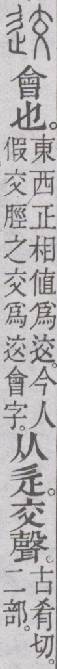 䢒會也。東西正相值爲䢒。今人假交脛之交爲䢒會字。从辵。交聲。古肴切。二部。